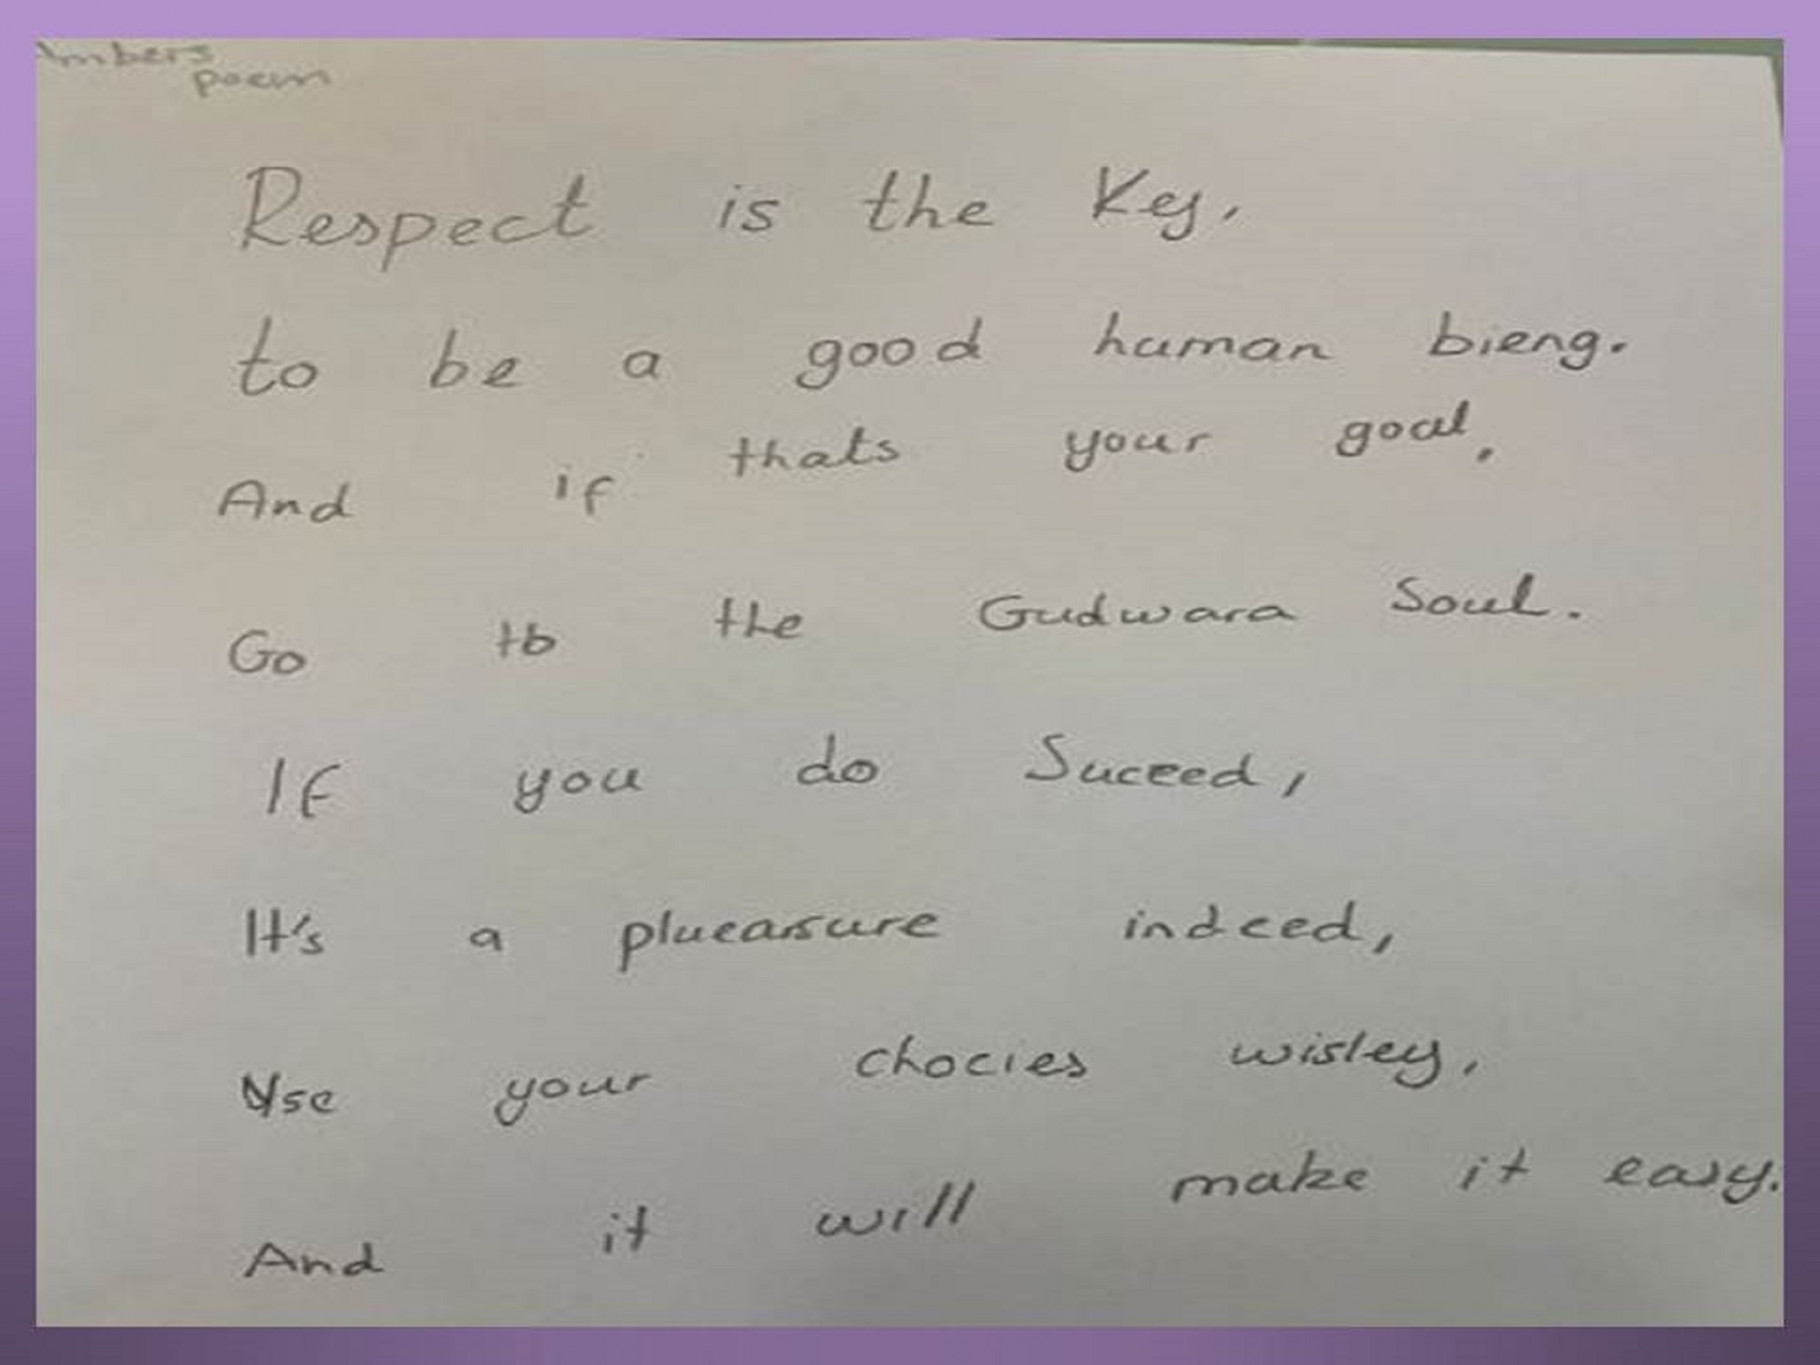 Ambers
poem
Respect is the Key,
to be a good human bieng.
And if thats your goal,
Go to the Gudwara Soul.
If you do Suceed,
It's a plueasure indeed,
Use your chocies wisley,
And it will make it easy.